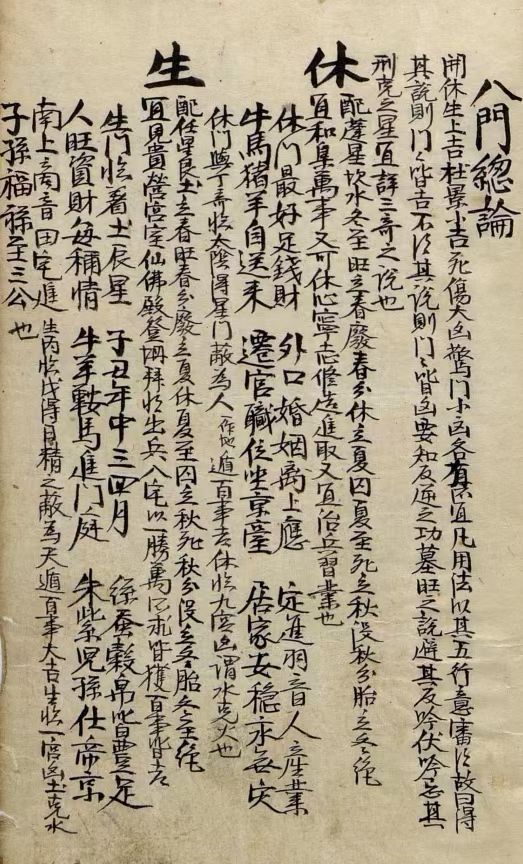 八門總論
開休生上吉杜景小吉死傷大凶驚門小凶各有宜凡用法以其五行意審詳故曰得
其說則門〻皆吉不得其說則門〻皆凶要知反逆之功墓旺之說避其反吟伏吟忌其
刑克之星宜詳三奇之說也
休
配蓬星坎水冬至旺立春廢春分休立夏囚夏至死立秋沒秋分胎立冬絕
宜和集萬事又可休心寧志修造進取又宜治兵習業也
休門最好足錢財 外口婚姻南上應 定進羽音人產業
牛馬猪羊自送来 遷官職位坐京臺 居家安穩永無災
休門與丁奇臨太陰得星門蔽為人作地遁百事吉休臨九宮凶謂水克火也
生
配任星艮土立春旺春分廢立夏休夏至囚立秋死秋分沒立冬胎冬至絕
宜見貴營宮室仙佛殿登壇拜將出兵入宅以一勝萬所求皆獲百事皆吉
生門臨著土辰星 子丑年中三四月 絲蚕穀帛皆豐足
人旺資財每稱情 牛羊鞍馬進門庭 朱紫兒孫仕帝京
南上商音田宅進 生丙臨戊得月精之蔽為天遁百事大吉生臨一宮凶土克水
子孫福祿至三公也